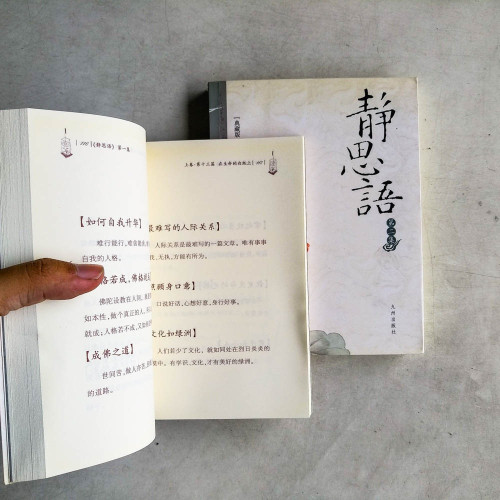 《静思语》第一集
【如何自我升华】
难行能行,难舍能舍
自我的人格。
格若成,佛格
佛陀设教在人间,
如本性,做个真正的人,
就成;人格若不成,又如
【成佛之道】
世间苦,做人亦苦
的道路。
上卷·第十三篇
最难写的人际关系】
人际关系是最难写的一篇文章。唯有事事
我、无执,方能有所为。
照顾身口意】
口说好话,心想好意,身行好事。
文化如绿洲】
人们若少了文化,就如同处在烈日炎炎的
漠中。有学识、文化,才有美好的绿洲。
【典藏版
靜思語
第二集
九州出版社